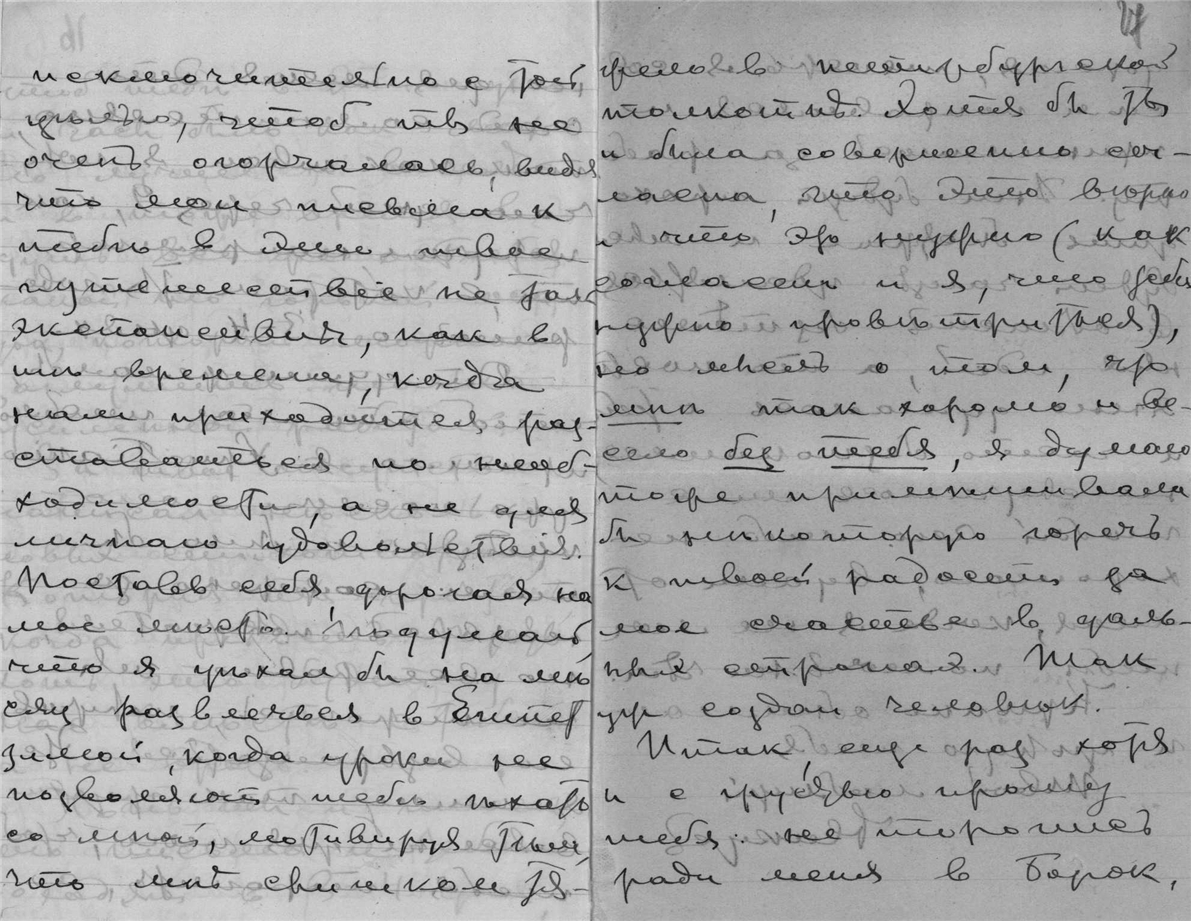 исключительно с той
цѣлью, чтоб ты не
очень огорчалась, видя
что мои письма к
тебѣ в это твое
путешествіе не так
экспансивны, как в
тѣ времена, когда
нам приходится раз-
ставаться по необ-
ходимости, а не для
личнаго удовольствія.
Поставь себя, дорогая на
мое мѣсто. Подумай
что я уѣхал бы на мѣ
сяц развлечься в Египет
зимой, когда уроки не
позволяют тебѣ ѣхать
со мной, мотивируя тѣм,
что мнѣ слишком тя-
жело в петербургской
толкотнѣ. Хотя бы ты
и была совершенно сог-
ласна, что это вѣрно
и что это нужно (как
согласен и я, что тебѣ
нужно провѣтриться),
но мысль о том, что
мнѣ так хорошо и ве-
село без тебя, я думаю
тоже примѣшивала
бы нѣкоторую горечь
к твоей радости за
мое счастье в даль-
них странах. Так
уж создан человѣк.
Итак, еще раз хотя
и с грустью прошу
тебя: не торопись
ради меня в Борок,